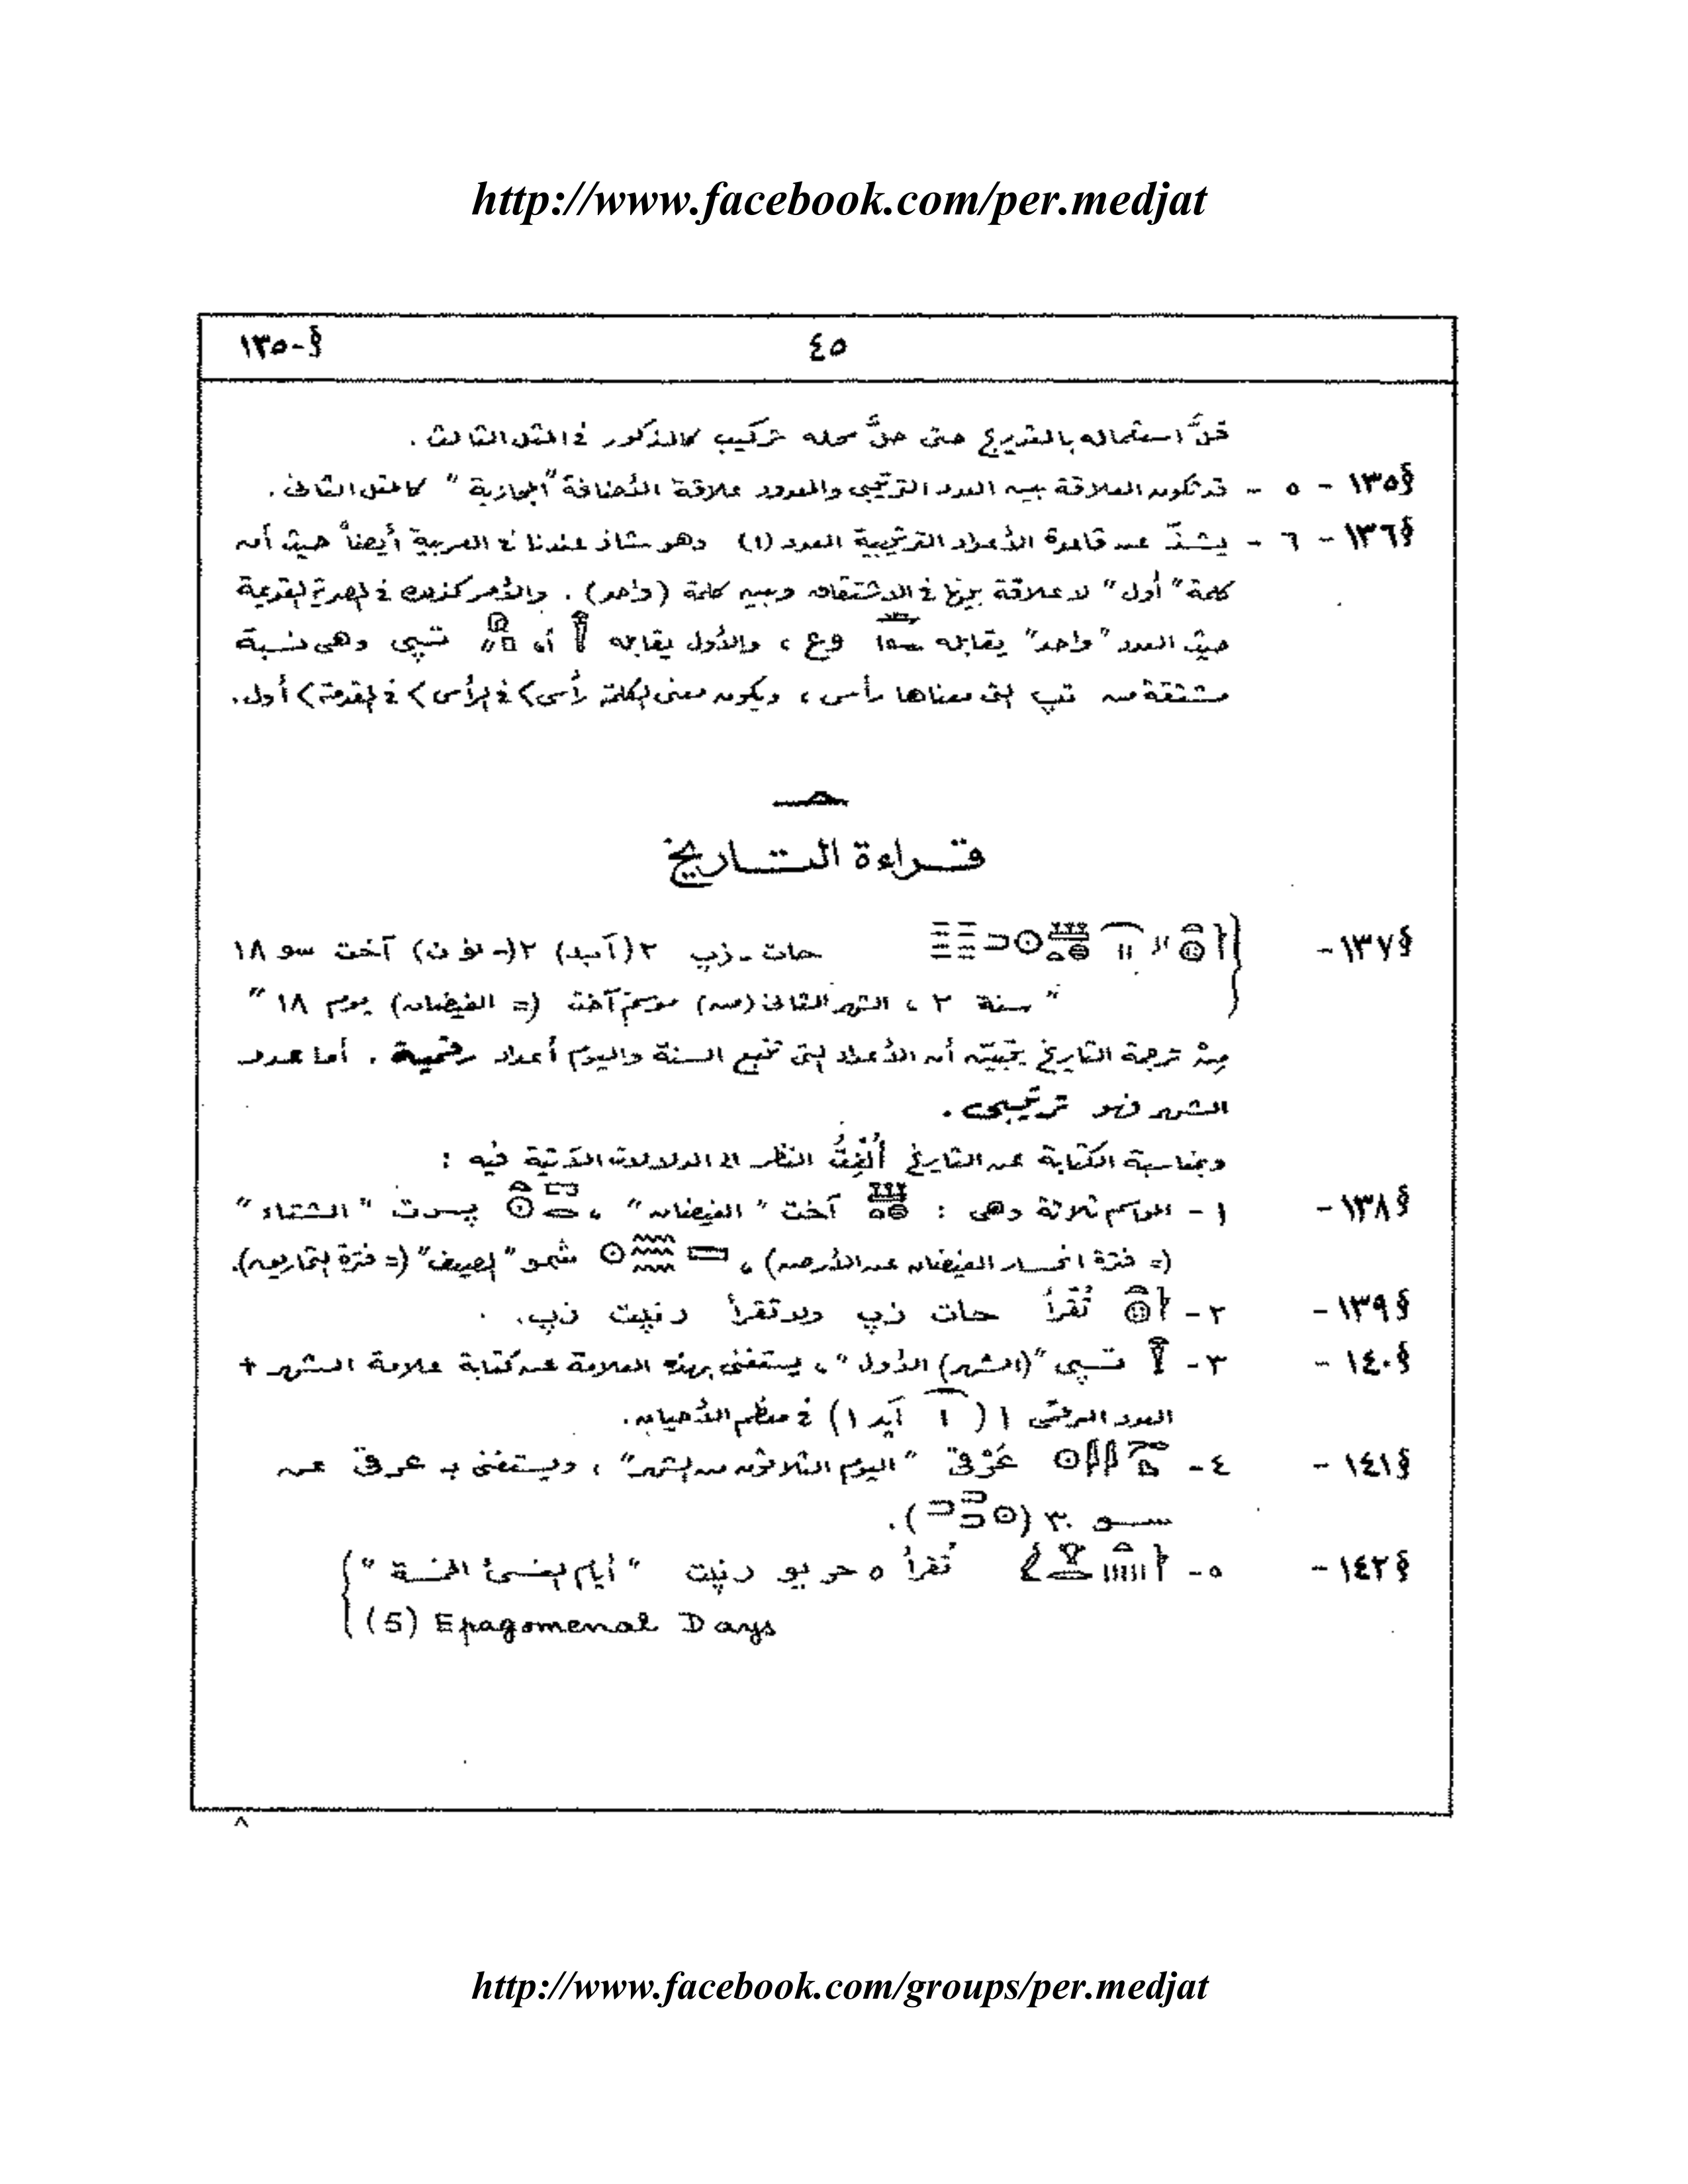 http://www.facebook.com/per.medjat
§-١٣٥ ٤٥
قلَّ استعماله بالتدريج حتى حلَّ محله تركيب كالمذكور فى المثل الثالث .
§١٣٥ - ٥ - قد تكون العلاقة بين العدد الترتيبى والمعدود علاقة الأضافة "المجازية" كالمثل الثانى .
§١٣٦ - ٦ - يشذّ عن قاعدة الأعداد الترتيبية العدد (١) وهو شاذ عندنا فى العربية أيضاً حيث أن
كلمة "أول" لا علاقة بينها فى الاشتقاق وبين كلمة (واحد) . والأمر كذلك فى المصرية القديمة
حيث العدد "واحد" يقابله وع ، والأول يقابله أو تـپى وهى نسبة
مشتقة من تپ التى معناها رأس ، ويكون معنى الكلمة رأسى > فى الرأس > فى المقدمة > أول .
قراءة التاريخ
§١٣٧- حات - زپ ٢ (آبد) ٢ (- نو ن) آخت سو ١٨
" سنة ٢ ، الشهر الثانى (من) موسم آخت (= الفيضان) يوم ١٨ "
مِنْ ترجمة التاريخ يتبين أن الأعداد التى تتبع السنة واليوم أعداد رقمية . أما عدد
الشهر فهو ترتيبى .
وبمناسبة الكتابة عن التاريخ أُلْفِتُ النظر الى الدلالات الآتية فيه :
§١٣٨- ١ - المواسم ثلاثة وهى : آخت "الفيضان" ، پـرت "الشتاء"
(= فترة انحسار الفيضان عن الأرض) ، شمو "الصيف" (= فترة التحاريق).
§١٣٩- ٢ - تُقرأ حات زپ ولا تقرأ رنپت زپ .
§١٤٠ - ٣ - تـپى "(الشهر) الأول" ، يستغنى بهذه العلامة عن كتابة علامة الشهر +
العدد الرقمى ١ ( آبد ١) فى معظم الأحيان .
§١٤١ - ٤ - عَرْقىْ "اليوم الثلاثون من الشهر" ، ويستغنى بـ عرقى عن
سـو ٣٠ ( ) .
§١٤٢ - ٥ - تُقرأ ٥ حريو رنپت "أيام النسئ الخمسة"
(5) Epagomenal Days
٨
http://www.facebook.com/groups/per.medjat